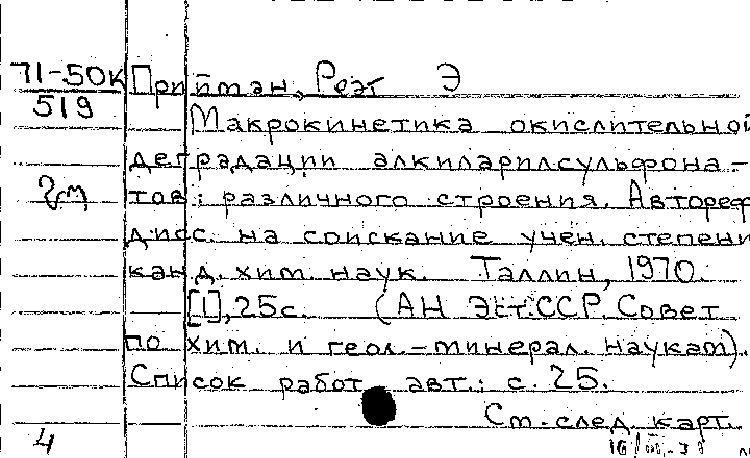 71-50к Прийман, Реэт Э
519
Макрокинетика окислительной
деградации алкиларилсульфона-
2см тов: различного строения. Автореф
дисс. на соискание учен. степени
канд. хим. наук. Таллин, 1970.
[1], 25с. (АН Эст.ССР. Совет
по хим. и геол.-минерал. наукам).
Список работ авт.: с. 25.
См. след. карт.
4